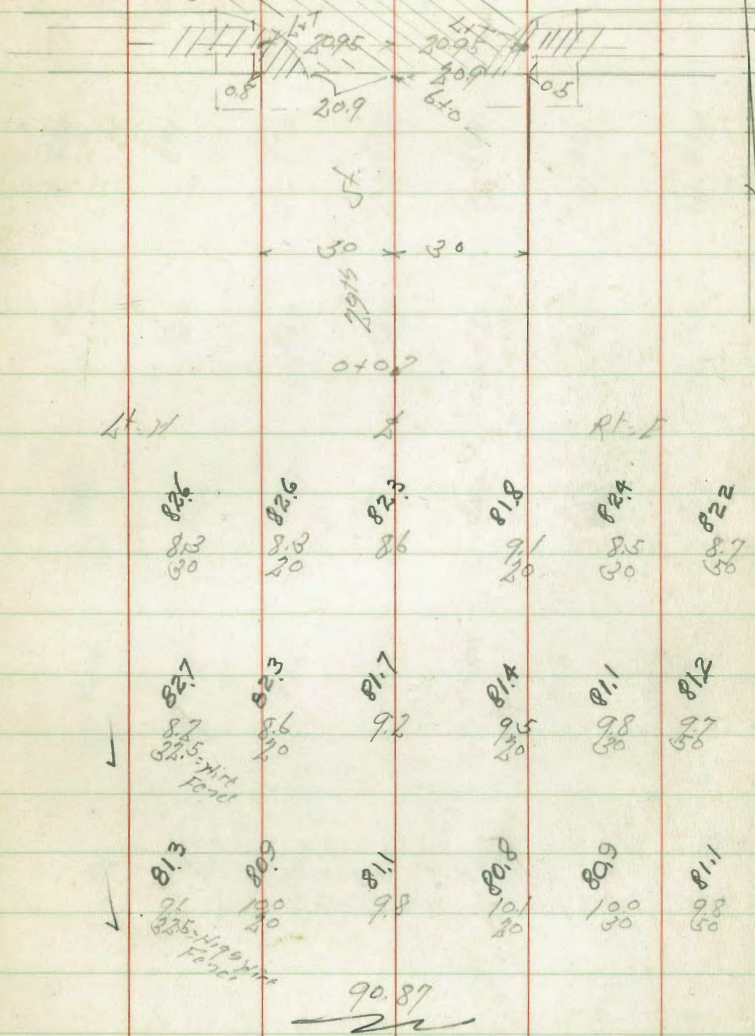 L&T L&T
20.95 20.95
0.8 20.9 20.9 0.5
6+0
30 30
29th St.
0+0
Lt. ℄ Rt.
82.6 82.6 82.3 81.8 82.4 82.2
8.3 8.3 8.6 9.1 8.5 8.7
30 20 20 30 50
82.7 82.3 81.7 81.4 81.1 81.2
8.2 8.6 9.2 9.5 9.8 9.7
32.5=Wire 20 20 30 50
Fence
81.3 80.9 81.1 80.8 80.9 81.1
9.6 10.0 9.8 10.1 10.0 9.8
20 20 30 50
Wire
Fence
90.87